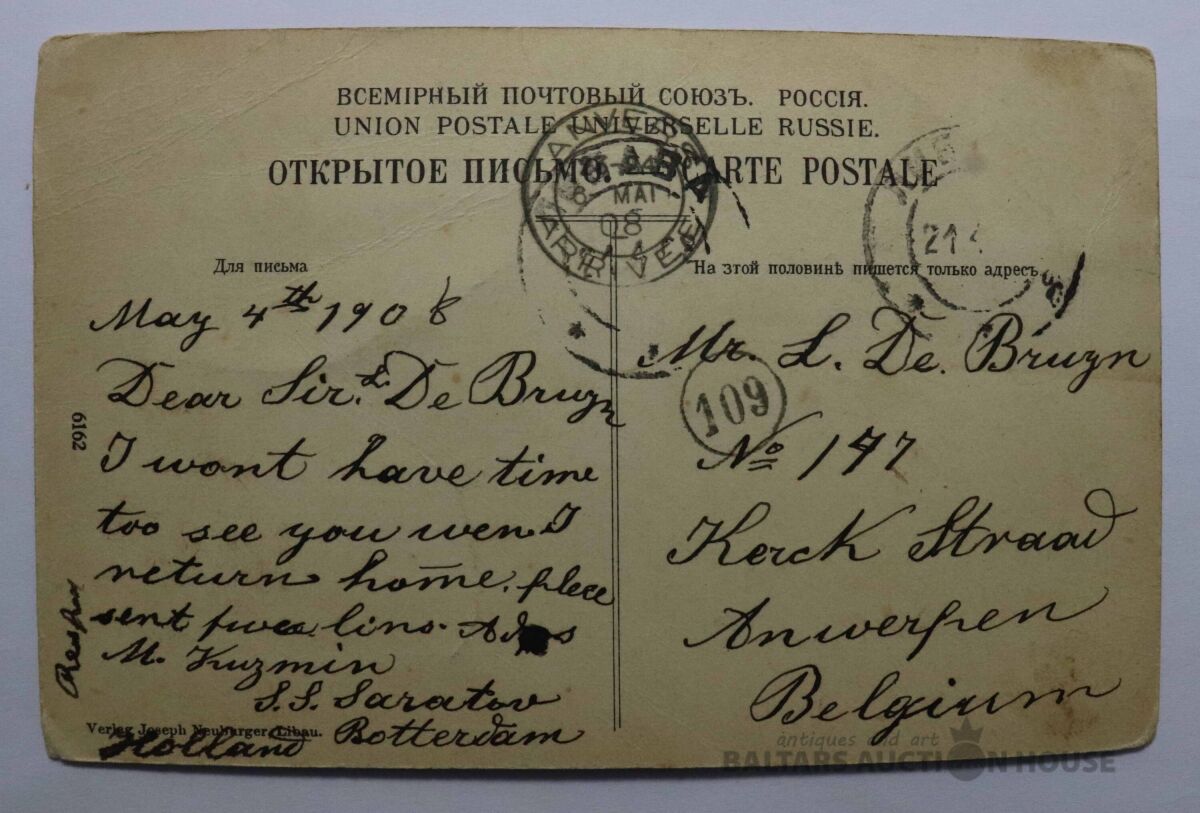 ВСЕМІРНЫЙ ПОЧТОВЫЙ СОЮЗЪ. РОССІЯ.
UNION POSTALE UNIVERSELLE RUSSIE.
ОТКРЫТОЕ ПИСЬМО. CARTE POSTALE
ANVERS
6 MAI
08
ARRIVÉE
214
Для письма
На этой половинѣ пишется только адресъ
May 4th 1908
Dear Sir. L. De Bruyn
I wont have time
too see you wen I
return home. plece
sent
lins.
M. Kuzmin
S.S. Saratov
Rotterdam
Holland
6162
Verlag Joseph Neuburger, Libau.
Mr. L. De. Bruyn
109
No 147
Kerck Straad
Anwerpen
Belgium
antiques and art
BALTARS AUCTION HOUSE